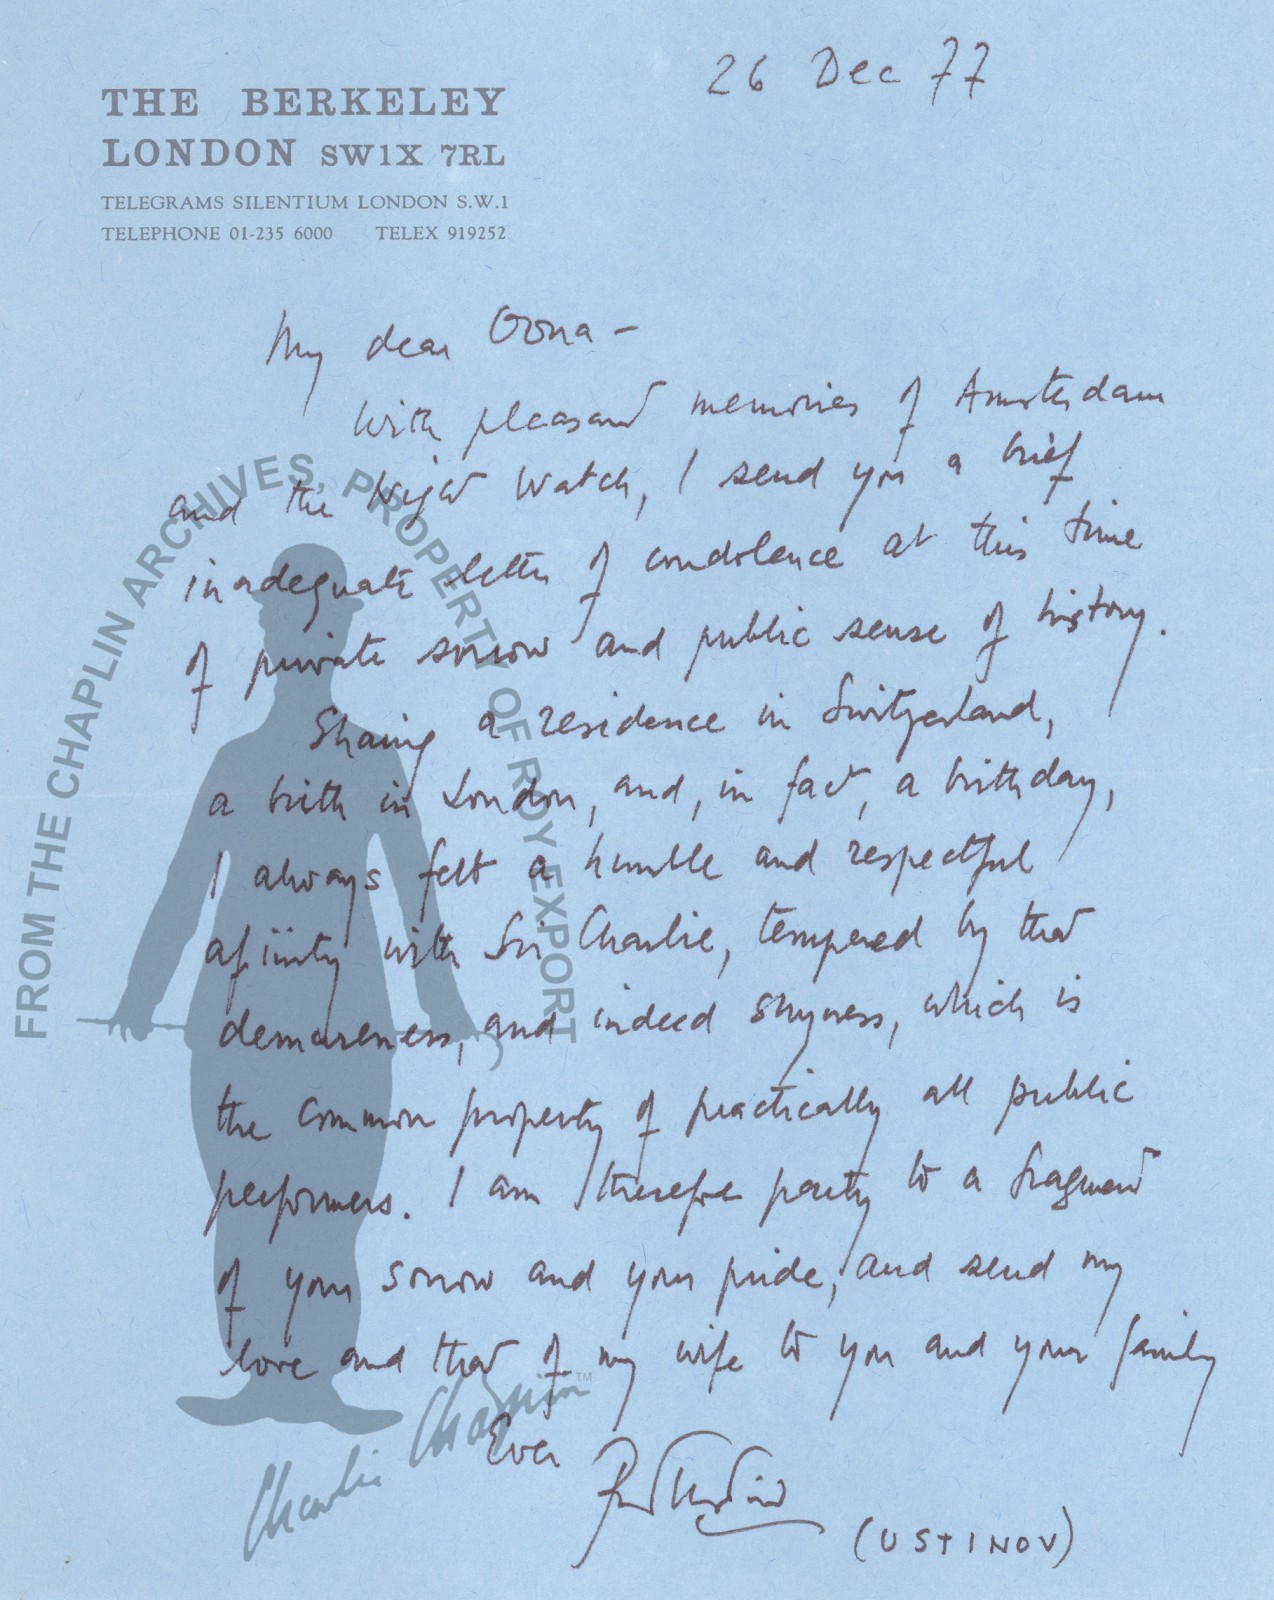 26 Dec 77
THE BERKELEY
LONDON SW1X 7RL
TELEGRAMS SILENTIUM LONDON S.W.1
TELEPHONE 01-235 6000 TELEX 919252
My dear Oona –
With pleasant memories of Amsterdam
and the Night Watch, I send you a brief
inadequate letter of condolence at this time
of private sorrow and public sense of history.
Sharing a residence in Switzerland,
a birth in London, and, in fact, a birthday,
I always felt a humble and respectful
affinity with Sir Charlie, tempered by that
demureness, and indeed shyness, which is
the common property of practically all public
performers. I am therefore party to a fragment
of your sorrow and your pride, and send my
love and that of my wife to you and your family
Ever Peter Ustinov
(USTINOV)
FROM THE CHAPLIN ARCHIVES, PROPERTY OF ROY EXPORT
Charlie Chaplin™